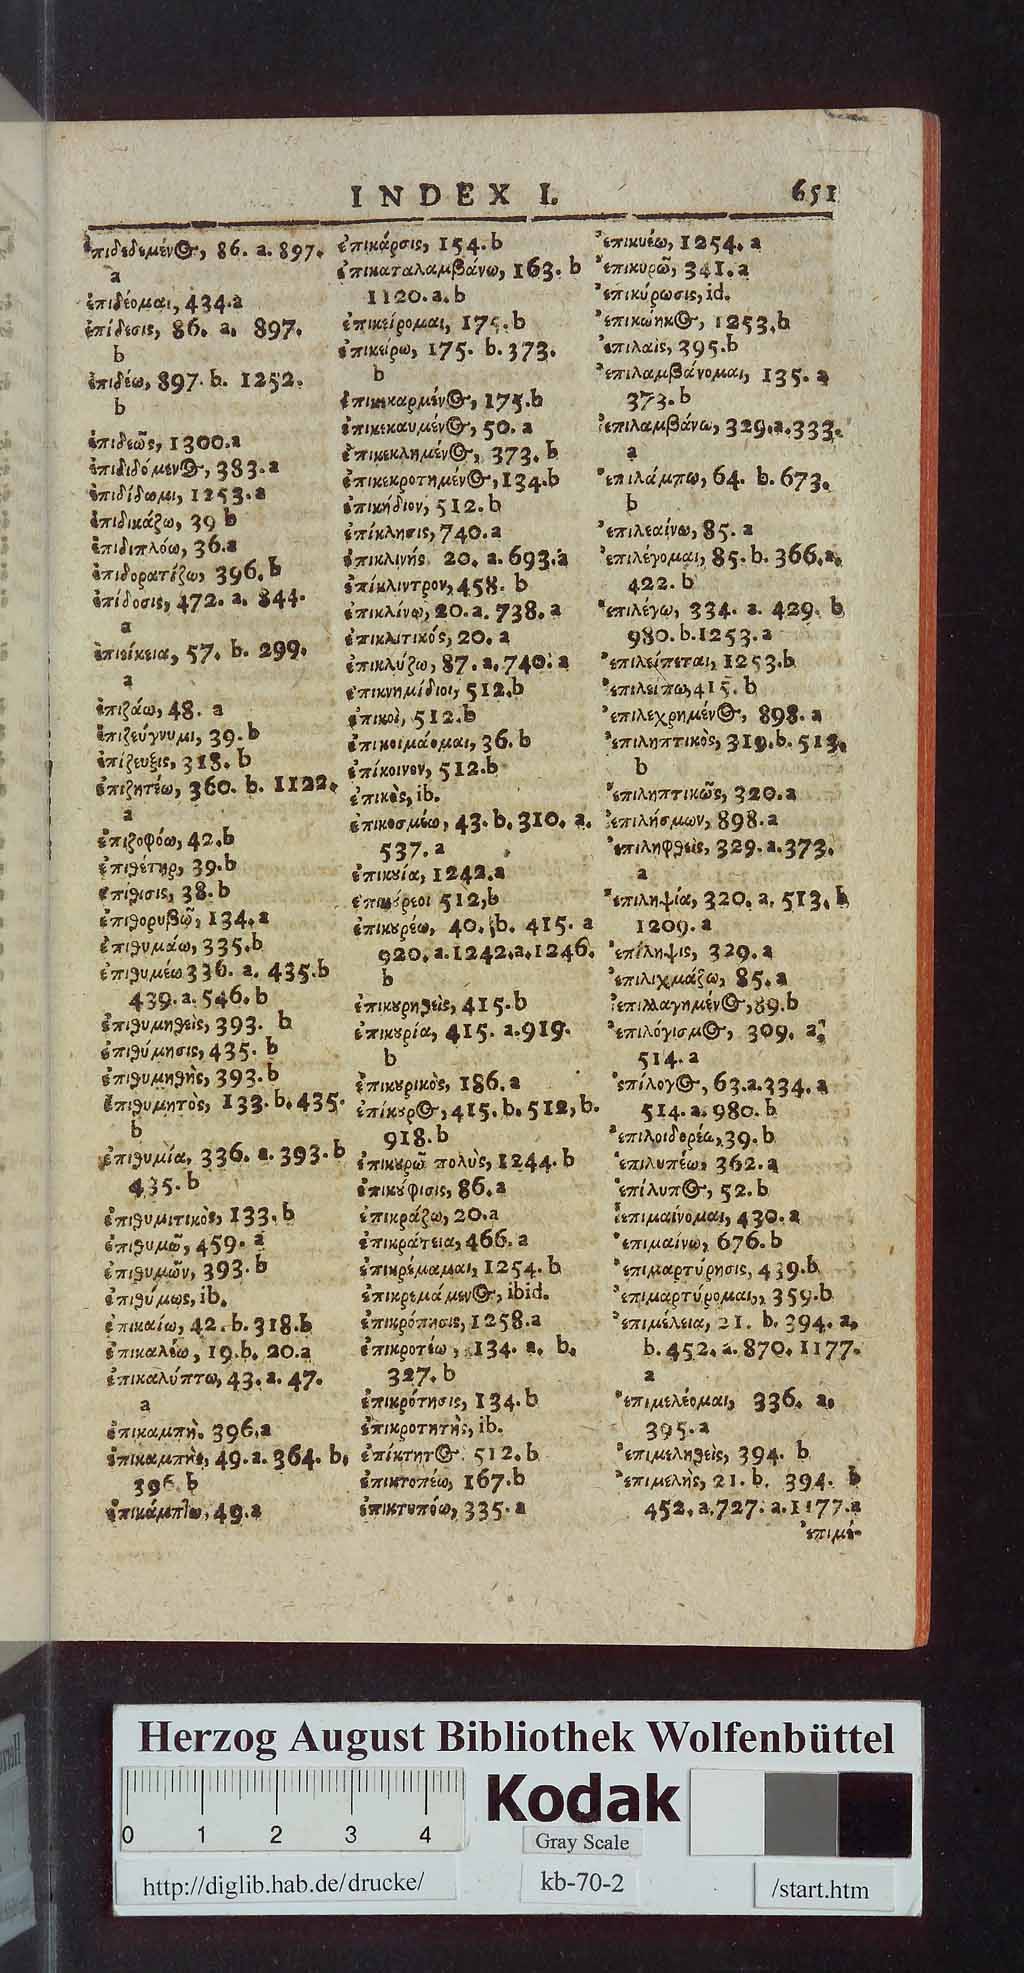 INDEX I. 651
ἐπιδεδεμένος, 86. a. 897.
a
ἐπιδέομαι, 434.a
ἐπίδεσις, 86. a. 897.
b
ἐπιδέω, 897. b. 1252.
b
ἐπιδεῶς, 1300.a
ἐπιδιδόμενος, 383.a
ἐπιδίδωμι, 1253.a
ἐπιδικάζω, 39 b
ἐπιδιπλόω, 36.a
ἐπιδορατίζω, 396. b
ἐπίδοσις, 472. a. 844.
a
ἐπιείκεια, 57. b. 299.
a
ἐπιζάω, 48. a
ἐπιζεύγνυμι, 39. b
ἐπίζευξις, 318. b
ἐπιζητέω, 360. b. 1122.
a
ἐπιζοφόω, 42.b
ἐπιθέτηρ, 39.b
ἐπίθισις, 38.b
ἐπιθορυβῶ, 134.a
ἐπιθυμάω, 335.b
ἐπιθυμέω 336. a. 435.b
439.a. 546. b
ἐπιθυμηθεὶς, 393. b
ἐπιθύμησις, 435. b
ἐπιθυμηθὴς, 393.b
ἐπιθυμητὸς, 133. b. 435.
b
ἐπιθυμία, 336. a. 393. b
435. b
ἐπιθυμιτικὸς, 133. b
ἐπιθυμῶ, 459. a
ἐπιθυμῶν, 393. b
ἐπιθύμως, ib.
ἐπικαίω, 42. b. 318.b
ἐπικαλέω, 19.b. 20.a
ἐπικαλύπτω, 43. a. 47.
a
ἐπικαμπὴ. 396.a
ἐπικαμπὴς, 49. a. 364. b.
396. b
ἐπικάμπτω, 49.a
ἐπικάρσις, 154. b
ἐπικαταλαμβάνω, 163. b
1120. a. b
ἐπικείρομαι, 175. b
ἐπικείρω, 175. b. 373.
b
ἐπικεκαρμένος, 175.b
ἐπικεκαυμένος, 50. a
ἐπικεκλημένος, 373. b
ἐπικεκροτημένος, 134.b
ἐπικήδιον, 512. b
ἐπίκλησις, 740.a
ἐπικλινής 20. a. 693.a
ἐπίκλιντρον, 458. b
ἐπικλίνω, 20.a. 738. a
ἐπικλιτικός, 20. a
ἐπικλύζω, 87. a. 740. a
ἐπικνημίδιοι, 512.b
ἐπικοὶ, 512.b
ἐπικοιμάομαι, 36. b
ἐπίκοινον, 512.b
ἐπικὸς, ib.
ἐπικοσμέω, 43. b. 310. a.
537. a
ἐπικȣία, 1242.a
ἐπικȣ́ρεοι 512,b
ἐπικȣρέω, 40. b. 415. a
920. a. 1242.a. 1246.
b
ἐπικȣρηθεὶς, 415. b
ἐπικȣρία, 415. a.919.
b
ἐπικȣρικὸς, 186. a
ἐπίκȣρος, 415. b. 512, b.
918. b
ἐπικȣρῶ πολὺς, 1244. b
ἐπικȣ́φισις, 86. a
ἐπικράζω, 20.a
ἐπικράτεια, 466. a
ἐπικρέμαμαι, 1254. b
ἐπικρεμάμενος, ibid.
ἐπικρότησις, 1258.a
ἐπικροτέω, 134. a. b.
327. b
ἐπικρότησις, 134. b
ἐπικροτητὴς, ib.
ἐπίκτητος 512. b
ἐπικτοπέω, 167.b
ἐπικτυπόω, 335. a
ἐπικυέω, 1254. a
ἐπικυρῶ, 341. a
ἐπικύρωσις, id.
1253.b
ἐπιλαὶς, 395.b
ἐπιλαμβάνομαι, 135. a
373. b
ἐπιλαμβάνω, 329.a.333.
a
ἐπιλάμπω, 64. b. 673.
b
ἐπιλεαίνω, 85. a
ἐπιλέγομαι, 85. b. 366.a.
422. b
ἐπιλέγω, 334. a. 429. b
980. b. 1253. a
ἐπιλείπεται, 1253.b
ἐπιλείπω, 415. b
ἐπιλεχρημένος, 898. a
ἐπιληπτικὸς, 319. b. 513.
b
ἐπιληπτικῶς, 320.a
ἐπιλήσμων, 898.a
ἐπιληφθεὶς, 329. a. 373.
a
ἐπιληψία, 320. a. 513. b
1209. a
ἐπίληψις, 329. a
ἐπιλιχμάζω, 85. a
ἐπιλλαγημένος, 89.b
ἐπιλόγισμος, 309. a.
514. a
ἐπίλογος, 63.a.334. a
514. a. 980. b
ἐπιλοιδορέω, 39. b
ἐπιλυπέω, 362. a
ἐπίλυπος, 52. b
ἐπιμαίνομαι, 430. a
ἐπιμαίνω, 676. b
ἐπιμαρτύρησις, 439. b
ἐπιμαρτύρομαι, 359.b
ἐπιμέλεια, 21. b. 394. a.
b. 452. a. 870. 1177.
a
ἐπιμελέομαι, 336. a.
395. a
ἐπιμεληθεὶς, 394. b
ἐπιμελὴς, 21. b. 394. b
452. a. 727. a. 1177.a
ἐπιμέ-
Herzog August Bibliothek Wolfenbüttel
0 1 2 3 4
Kodak
Gray Scale
http://diglib.hab.de/drucke/
kb-70-2
/start.htm